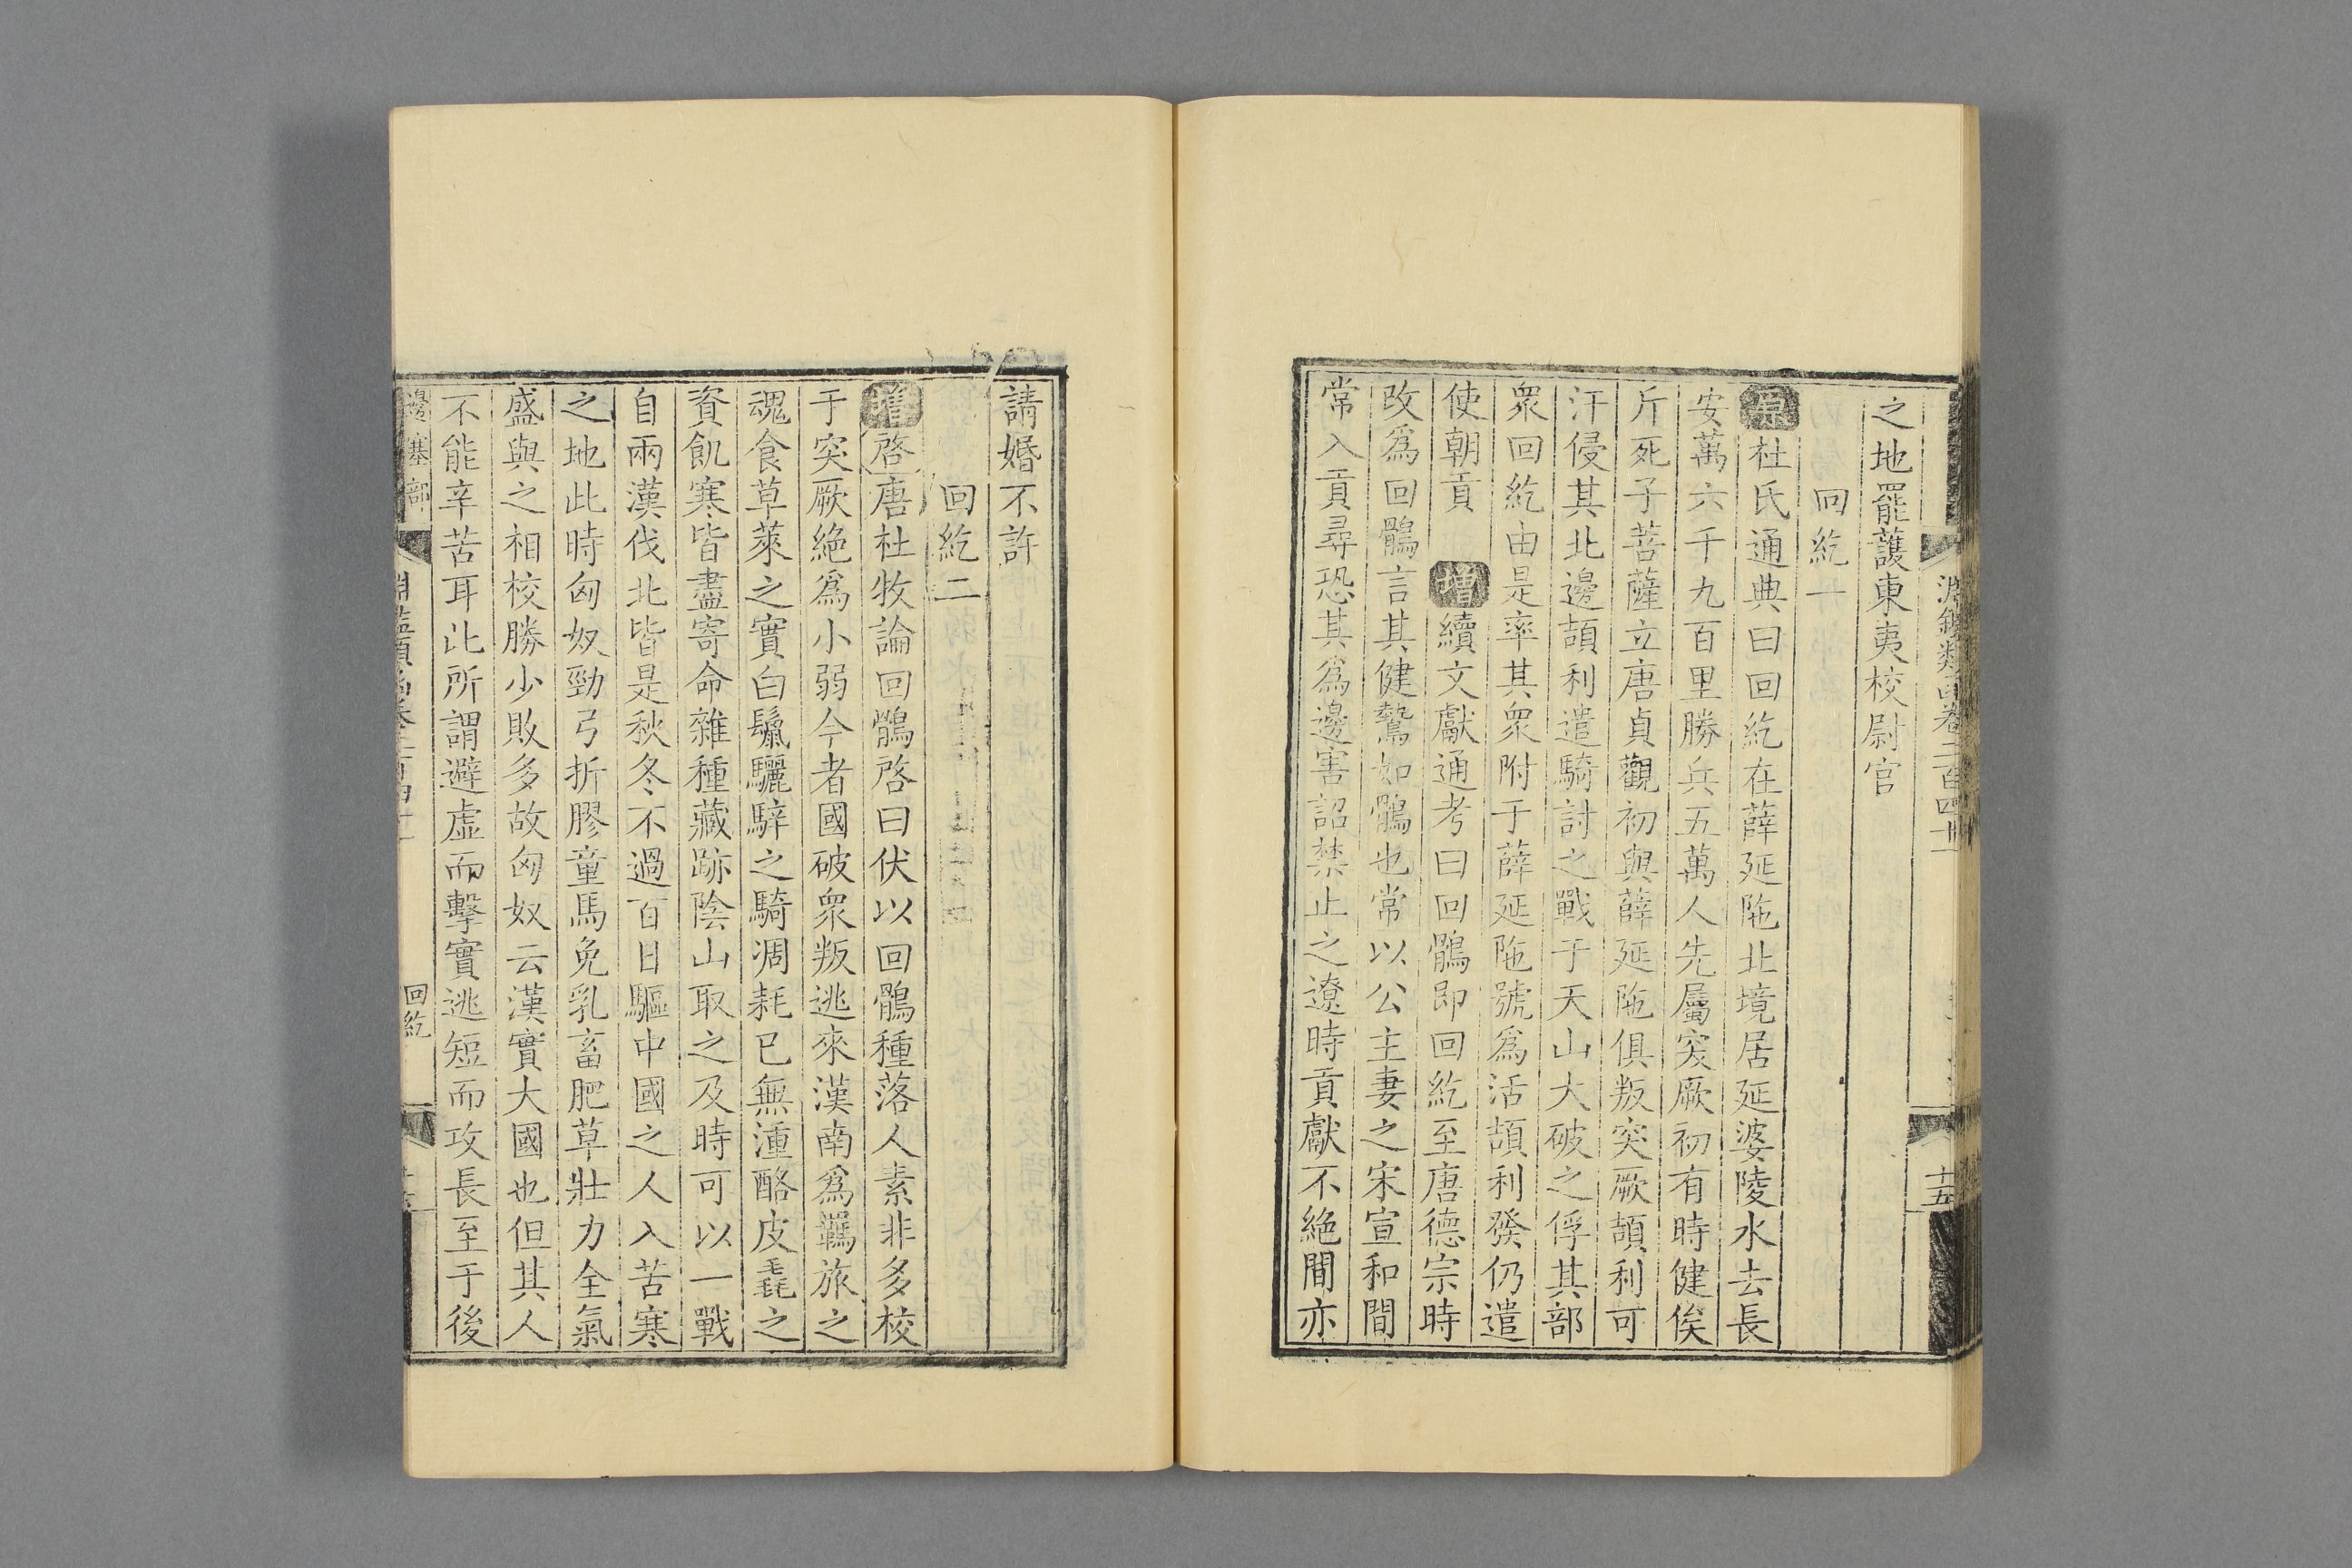 淵鑑類函卷二百四十一
十五
之地罷護東夷校尉官
回紇一
原杜氏通典曰回紇在薛延陁北境居延婆陵水去長
安萬六千九百里勝兵五萬人先屬突厥初有時健俟
斤死子菩薩立唐貞觀初與薛延陁俱叛突厥頡利可
汗侵其北邊頡利遣騎討之戰于天山大破之俘其部
衆回紇由是率其衆附于薛延陁號爲活頡利發仍遣
使朝貢 增續文獻通考曰回鶻即回紇至唐德宗時
改爲回鶻言其健鷙如鶻也常以公主妻之宋宣和間
常入貢尋恐其爲邊害詔禁止之遼時貢獻不絶間亦
請婚不許
回紇二
增啓唐杜牧論回鶻啓曰伏以回鶻種落人素非多校
于突厥絶爲小弱今者國破衆叛逃來漢南爲羈旅之
魂食草萊之實白鬚驪騂之騎凋耗已無湩酪皮毳之
資飢寒皆盡寄命雜種藏跡陰山取之及時可以一戰
自兩漢伐北皆是秋冬不過百日驅中國之人入苦寒
之地此時匈奴勁弓折膠童馬免乳畜肥草壯力全氣
盛與之相校勝少敗多故匈奴云漢實大國也但其人
不能辛苦耳此所謂避虛而擊實逃短而攻長至于後
邊塞部
淵鑑類函卷二百四十一
回紇